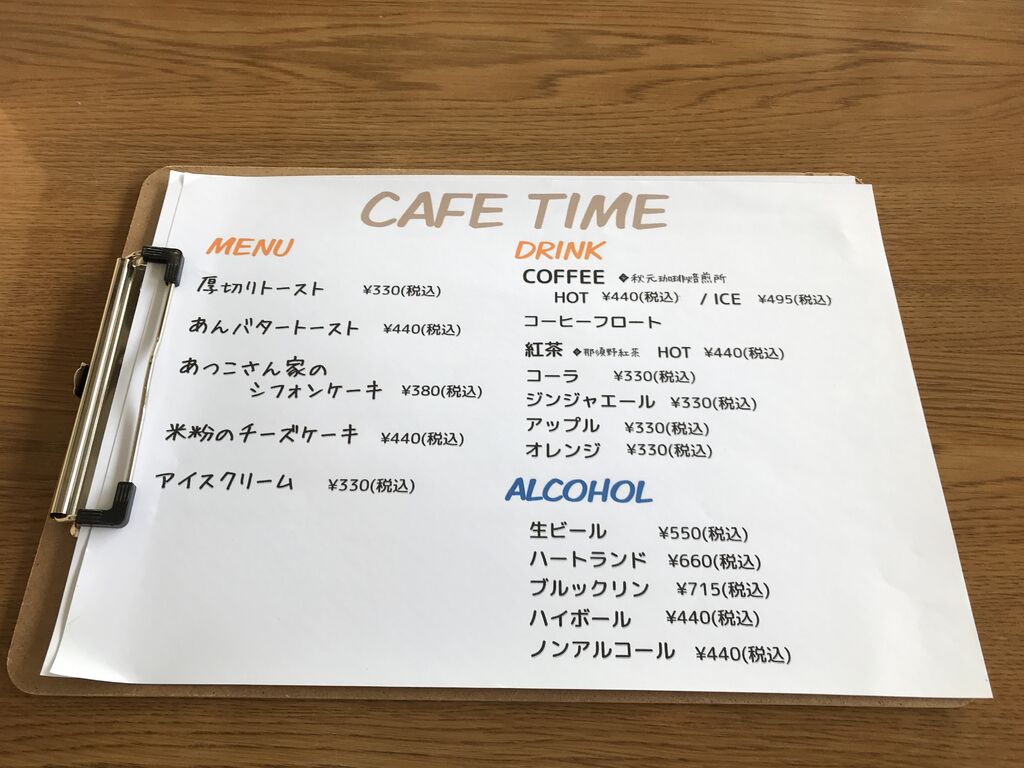 CAFE TIME
MENU
厚切りトースト ¥330(税込)
あんバタートースト ¥440(税込)
あっこさん家の
シフォンケーキ ¥380(税込)
米粉のチーズケーキ ¥440(税込)
アイスクリーム ¥330(税込)
DRINK
COFFEE ❖秋元珈琲焙煎所
HOT ¥440(税込) / ICE ¥495(税込)
コーヒーフロート
紅茶 ❖那須野紅茶 HOT ¥440(税込)
コーラ ¥330(税込)
ジンジャエール ¥330(税込)
アップル ¥330(税込)
オレンジ ¥330(税込)
ALCOHOL
生ビール ¥550(税込)
ハートランド ¥660(税込)
ブルックリン ¥715(税込)
ハイボール ¥440(税込)
ノンアルコール ¥440(税込)